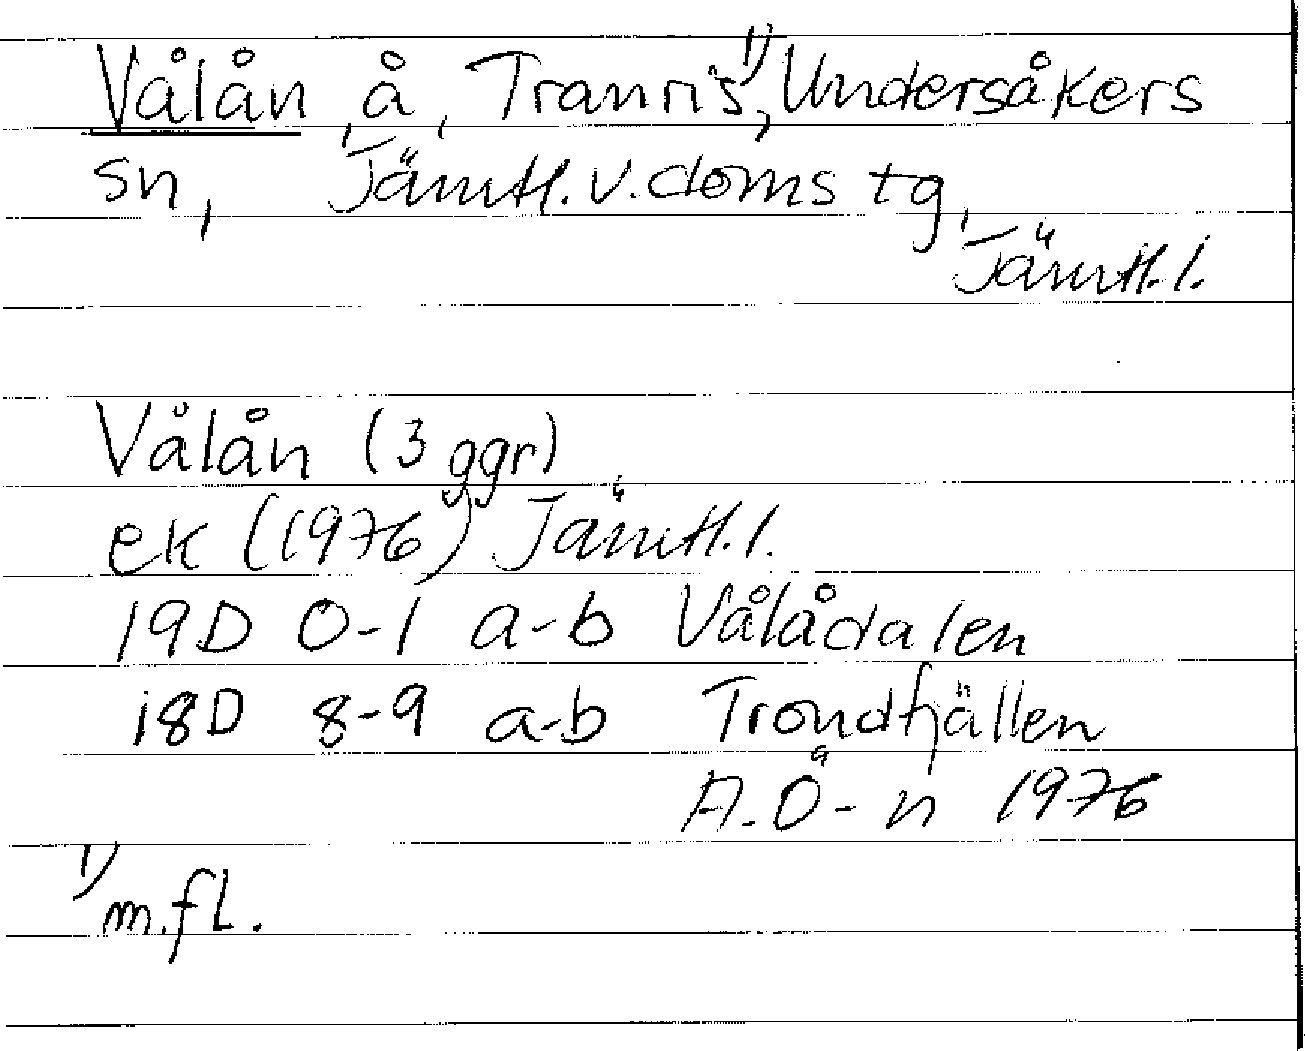 Vålån, å, Tranris¹⁾, Undersåkers
sn, Jämtl. v. doms tg,
Jämtl. l.
Vålån (3 ggr)
ek (1976) Jämtl. l.
19D 0-1 a-b Vålådalen
18D 8-9 a-b Trondfjällen
A. Ö-n 1976
¹⁾ m.fl.